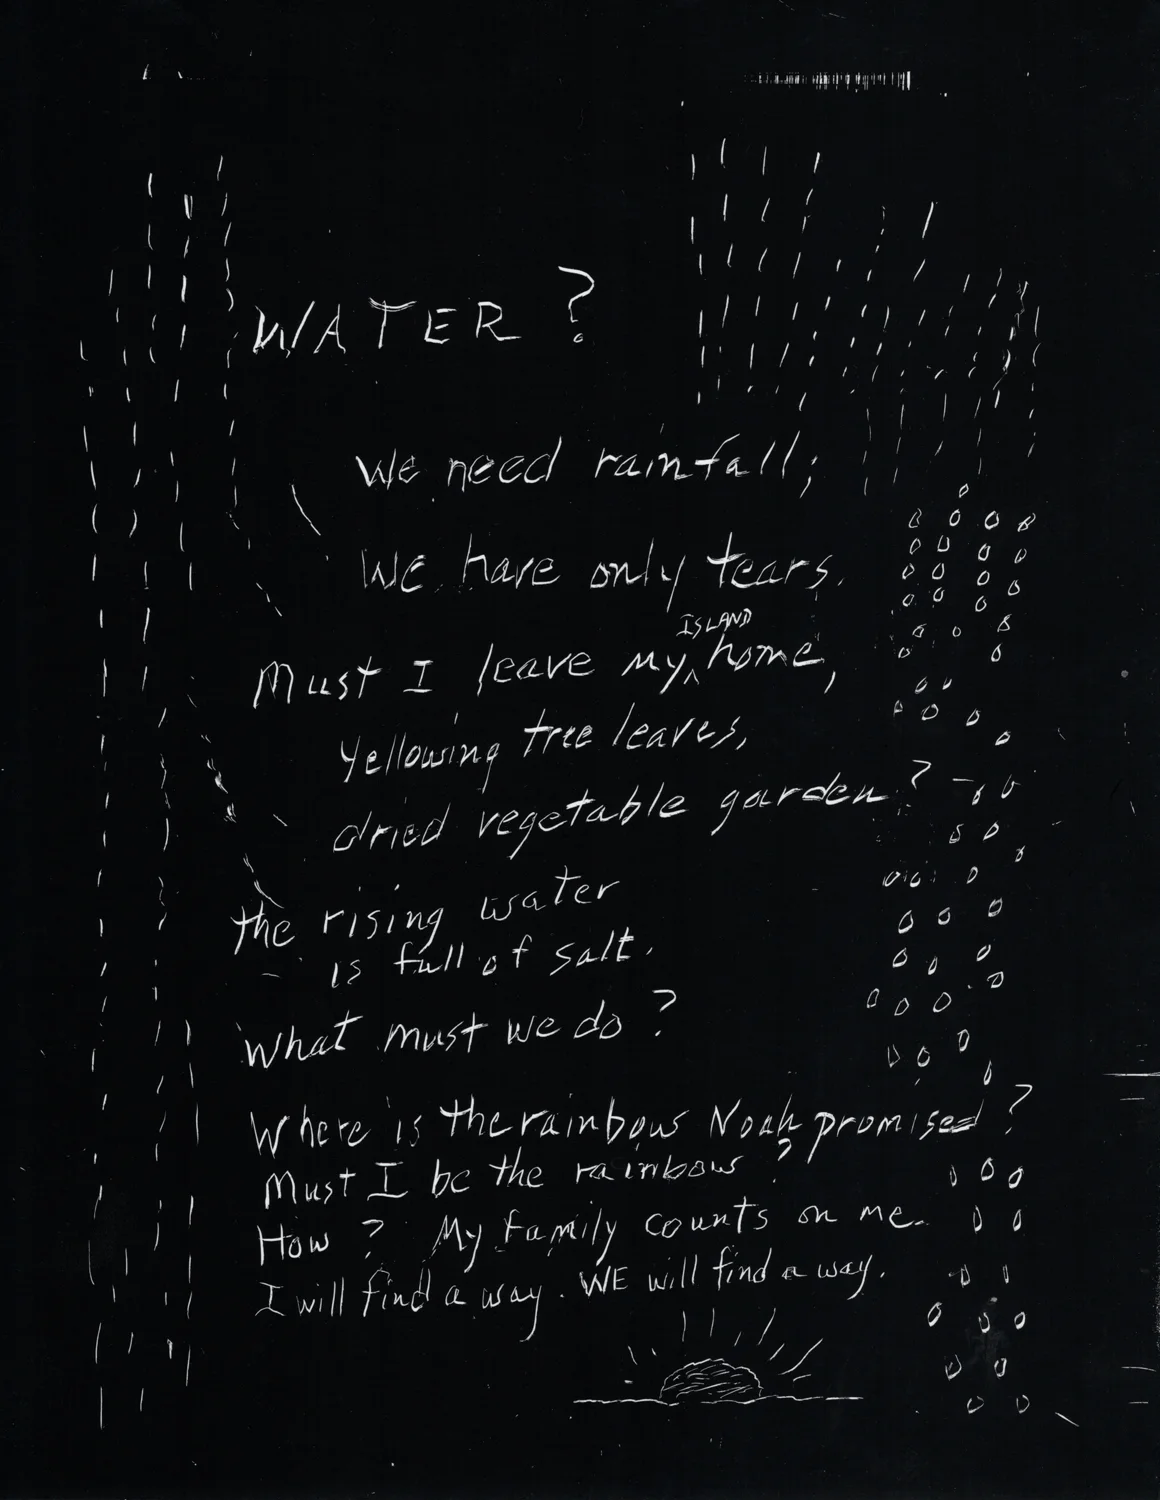 WATER ?
We need rainfall;
We have only tears.
Must I leave my ISLAND home,
yellowing tree leaves,
dried vegetable garden ?
the rising water
is full of salt.
What must we do ?
Where is the rainbow Noah promised ?
Must I be the rainbow ?
How ? My family counts on me.
I will find a way. WE will find a way.